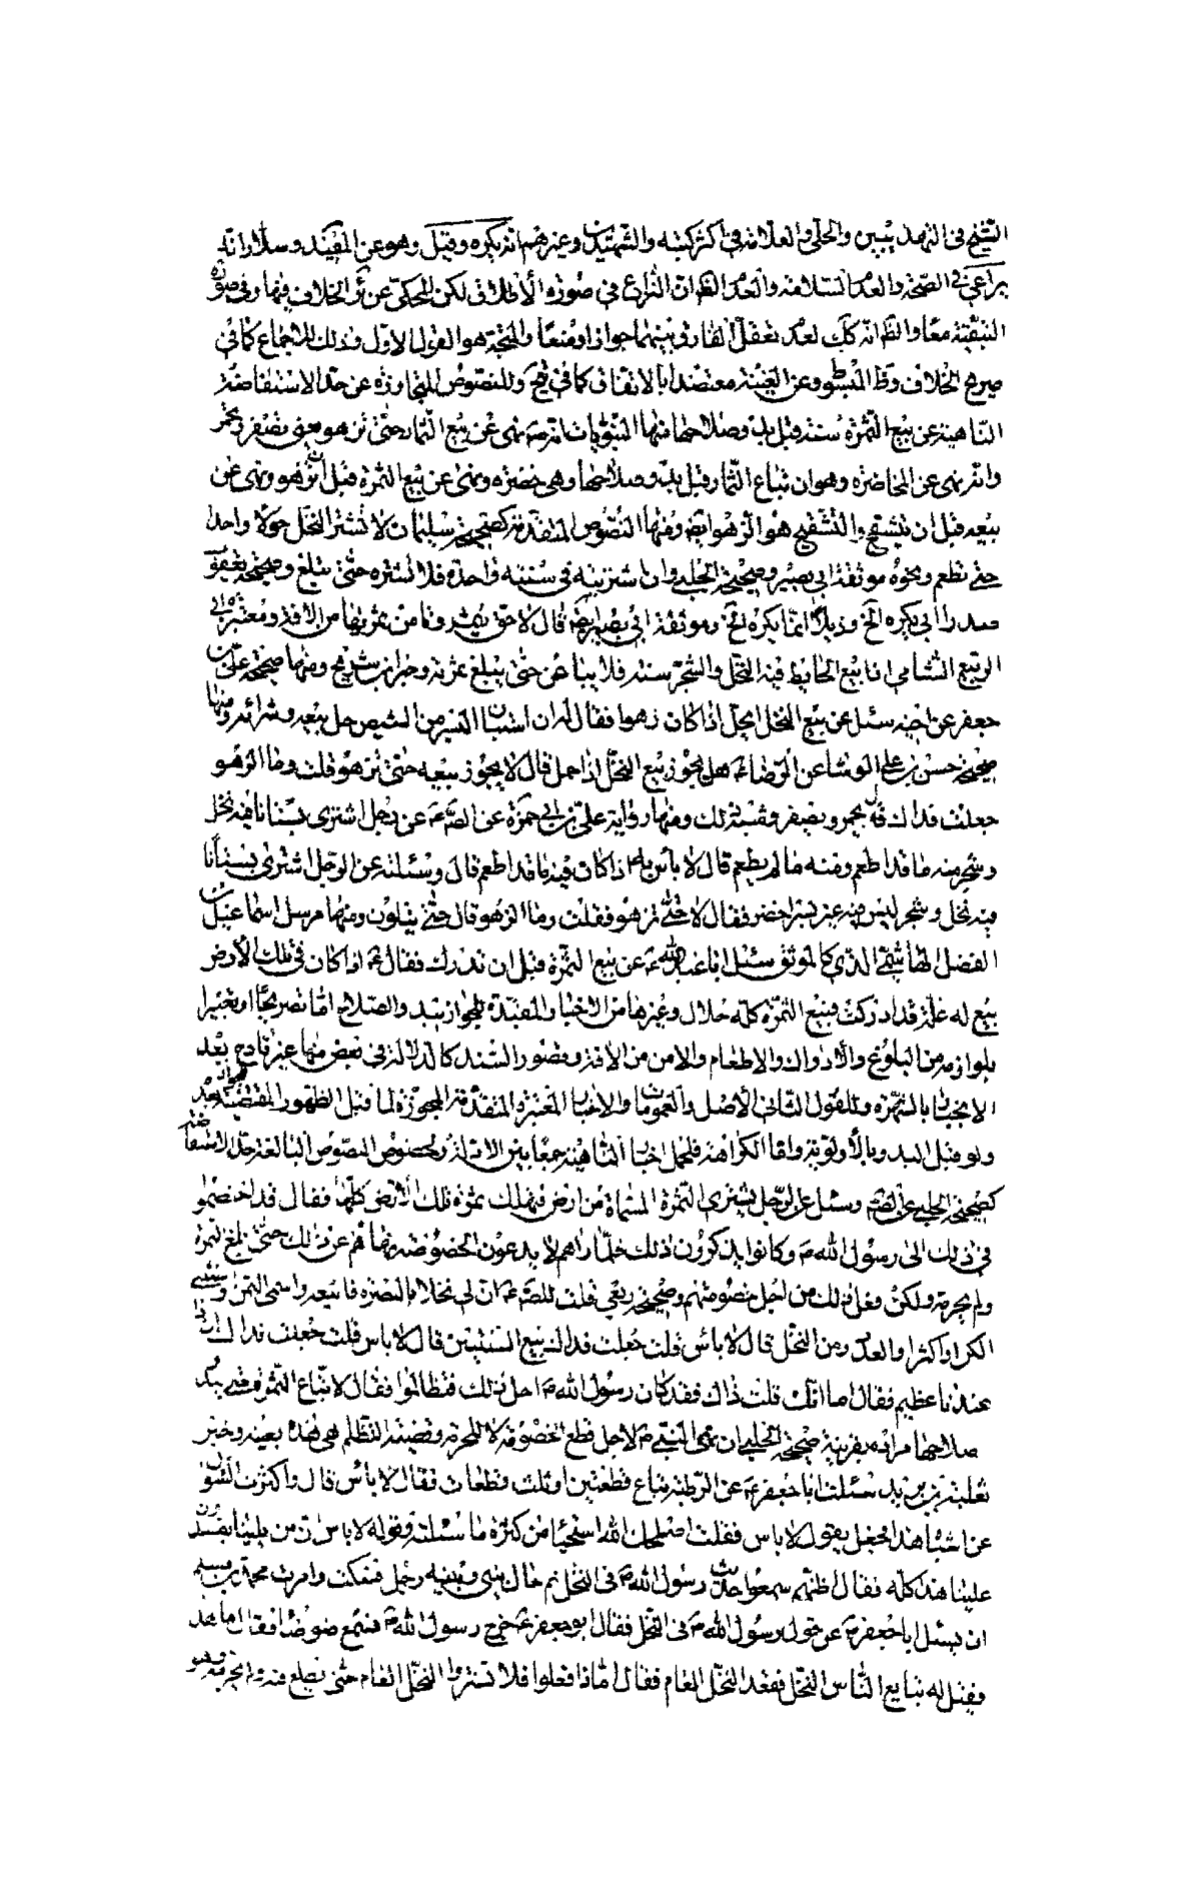 الشيخ في التهذيبين والحلي والعلامة في أكثر كتبه والشهيدين وغيرهم انه يكره وقيل وهو عن المفيد وسلار انه
يراعى في الصحة والعدم السلامة والعدم الظ ان النزاع في صورة الأطلاق لكن المحكي عن ثر الخلاف فيها وفي صورة
التبقية معا والظ انه كك لعدم تعقل الفارق بينهما جوازا ومنعا والحجة هو القول الأول وذلك للاجماع كما في
صريح الخلاف وظ المبسوط وعن الغنية معتضدا بالاتفاق كما في وللنصوص المتجاوزة عن حد الاستفاضة
الناهية عن بيع الثمرة سنة قبل بدو صلاحها منها النبويات انه ص نهى عن بيع الثمار حتى تزهو يعني تصفر وتحمر
وانه نهى عن المخاضرة وهو ان تباع الثمار قبل بدو صلاحها وهي خضرة ونهى عن بيع الثمرة قبل ان تزهو ونهى عن
بيعه قبل ان يتشقح والتشقيح هو الزهو ايضا ومنها النصوص المتقدمة كصحيحة سليمان لا تشتر النخل حولا واحدا
حتى تطعم ونحوه موثقة ابي بصير وصحيحة الحلبي وان اشتريته في سنة واحدة فلا تشتره حتى يبلغ وصحيحة يعقوب
صدرا ابي يكره الخ وذيلا انما يكره الخ وموثقة ابي بصير ايضا قال لا حتى يثمر وتأمن ثمرتها من الآفة ومعتبرة ابي
الربيع الشامي اذا بيع الحايط فيه النخل والشجر سنة فلا يباعن حتى يبلغ ثمرته وخبر ابن شريح ومنها صحيحة علي بن
جعفر عن اخيه سئل عن بيع النخل ايحل اذا كان زهوا فقال ان استبان البسر من الشيص حل بيعه وشرائه ومنها
صحيحة حسن بن علي الوشا عن الرضا ع هل يجوز بيع النخل اذا حمل قال لا يجوز بيعه حتى تزهو قلت وما الزهو
جعلت فداك قال يحمر ويصفر وشبه ذلك ومنها رواية علي بن ابي حمزة عن الص ع عن رجل اشترى بستانا فيه نخل
وشجر منه ما قد اطعم ومنه ما لم يطعم قال لا بأس به اذا كان فيه ما قد اطعم قال وسئلته عن الرجل اشترى بستانا
فيه نخل وشجر ليس فيه غير بسر اخضر فقال لا حتى تزهو فقلت وما الزهو قال حتى يتلون ومنها مرسل اسماعيل بن
الفضل الهاشمي الذي كالموثق سئل ابا عبد الله ع عن بيع الثمرة قبل ان تدرك فقال ع اذا كان في تلك الأرض
بيع له غلة قد ادركت فبيع الثمرة كله حلال وغيرها من الاخبار المقيدة للجواز ببدو الصلاح اما تصريحا او تعبيرا
بلوازمه من البلوغ والادراك والاطعام والامن من الآفة وقصور السند كالدلالة في بعض منها غير قادح بعد
الانجبار بالشهرة وللقول الثاني الأصل والعمومات والاخبار المعتبرة المتقدمة المجوزة لما قبل الظهور المقتضية لجوازه
ولو قبل البدو بالأولوية واما الكراهة فلحمل اخبار الناهية جمعا بين الادلة ولخصوص النصوص البالغة حد الاستفاضة
كصحيحة الحلبي عن الص ع وسئل عن الرجل يشتري الثمرة المسماة من ارض فتهلك ثمرة تلك الأرض كلها فقال قد اختصموا
في ذلك الى رسول الله ص وكانوا يذكرون ذلك فلما راهم لا يدعون الخصومة نهاهم عن ذلك حتى تبلغ الثمرة
ولم يحرمه ولكن فعل ذلك من اجل خصومتهم وصحيحة ربعي قلت للص ع ان لي نخلا بالبصرة فابيعه واسمي الثمن واستثني
الكر او اكثر او العدد من النخل قال لا بأس قلت جعلت فداك نبيع السنتين قال لا بأس قلت جعلت فداك ان ذا
عندنا عظيم فقال اما انك قلت ذاك فقد كان رسول الله ص احل ذلك فتظالموا فقال لا تباع الثمرة حتى يبدو
صلاحها مراده بقرينة صحيحة الحلبي ان نهي النبي ص لاجل قطع الخصومة لا للحرمة وقضية التظلم هي هذه بعينه وخبر
ثعلبة بن بريد سئلت ابا جعفر ع عن الرطبة تباع قطعتين او ثلث قطعات فقال لا بأس قال واكثرت السؤال
عن اشباه هذا فجعل يقول لا باس فقلت اصلحك الله استحياء من كثرة ما سئلته وقوله لا باس ان من يلينا يفسدون
علينا هذا كله فقال اظنهم سمعوا حديث رسول الله ص في النخل ثم حال بيني وبينه رجل فسكت وامرت محمد بن مسلم
ان يسئل ابا جعفر ع عن قول رسول الله ص في النخل فقال ابو جعفر ع خرج رسول الله ص فسمع ضوضاء فقال ما هذا
فقيل له تبايع الناس النخل فقعد النخل العام فقال اما اذا فعلوا فلا تشتروا النخل العام حتى يطلع فيه ولم يحرمه وهو